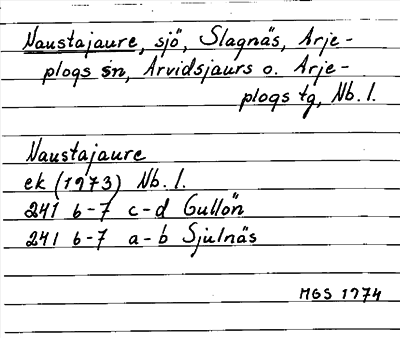 Naustajaure, sjö, Slagnäs, Arje-
plogs sn, Arvidsjaurs o. Arje-
plogs tg, Nb. l.
Naustajaure
ek (1973) Nb. l.
241 6-7 c-d Gullön
241 6-7 a-b Sjulnäs
MGS 1974